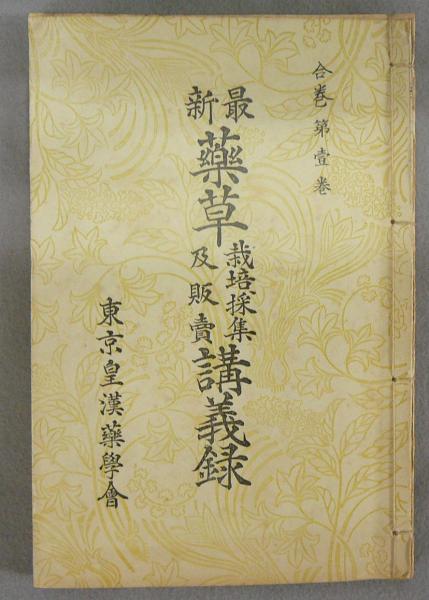 合巻第壹卷
最新藥草栽培採集及販賣講義録
東京皇漢藥學會